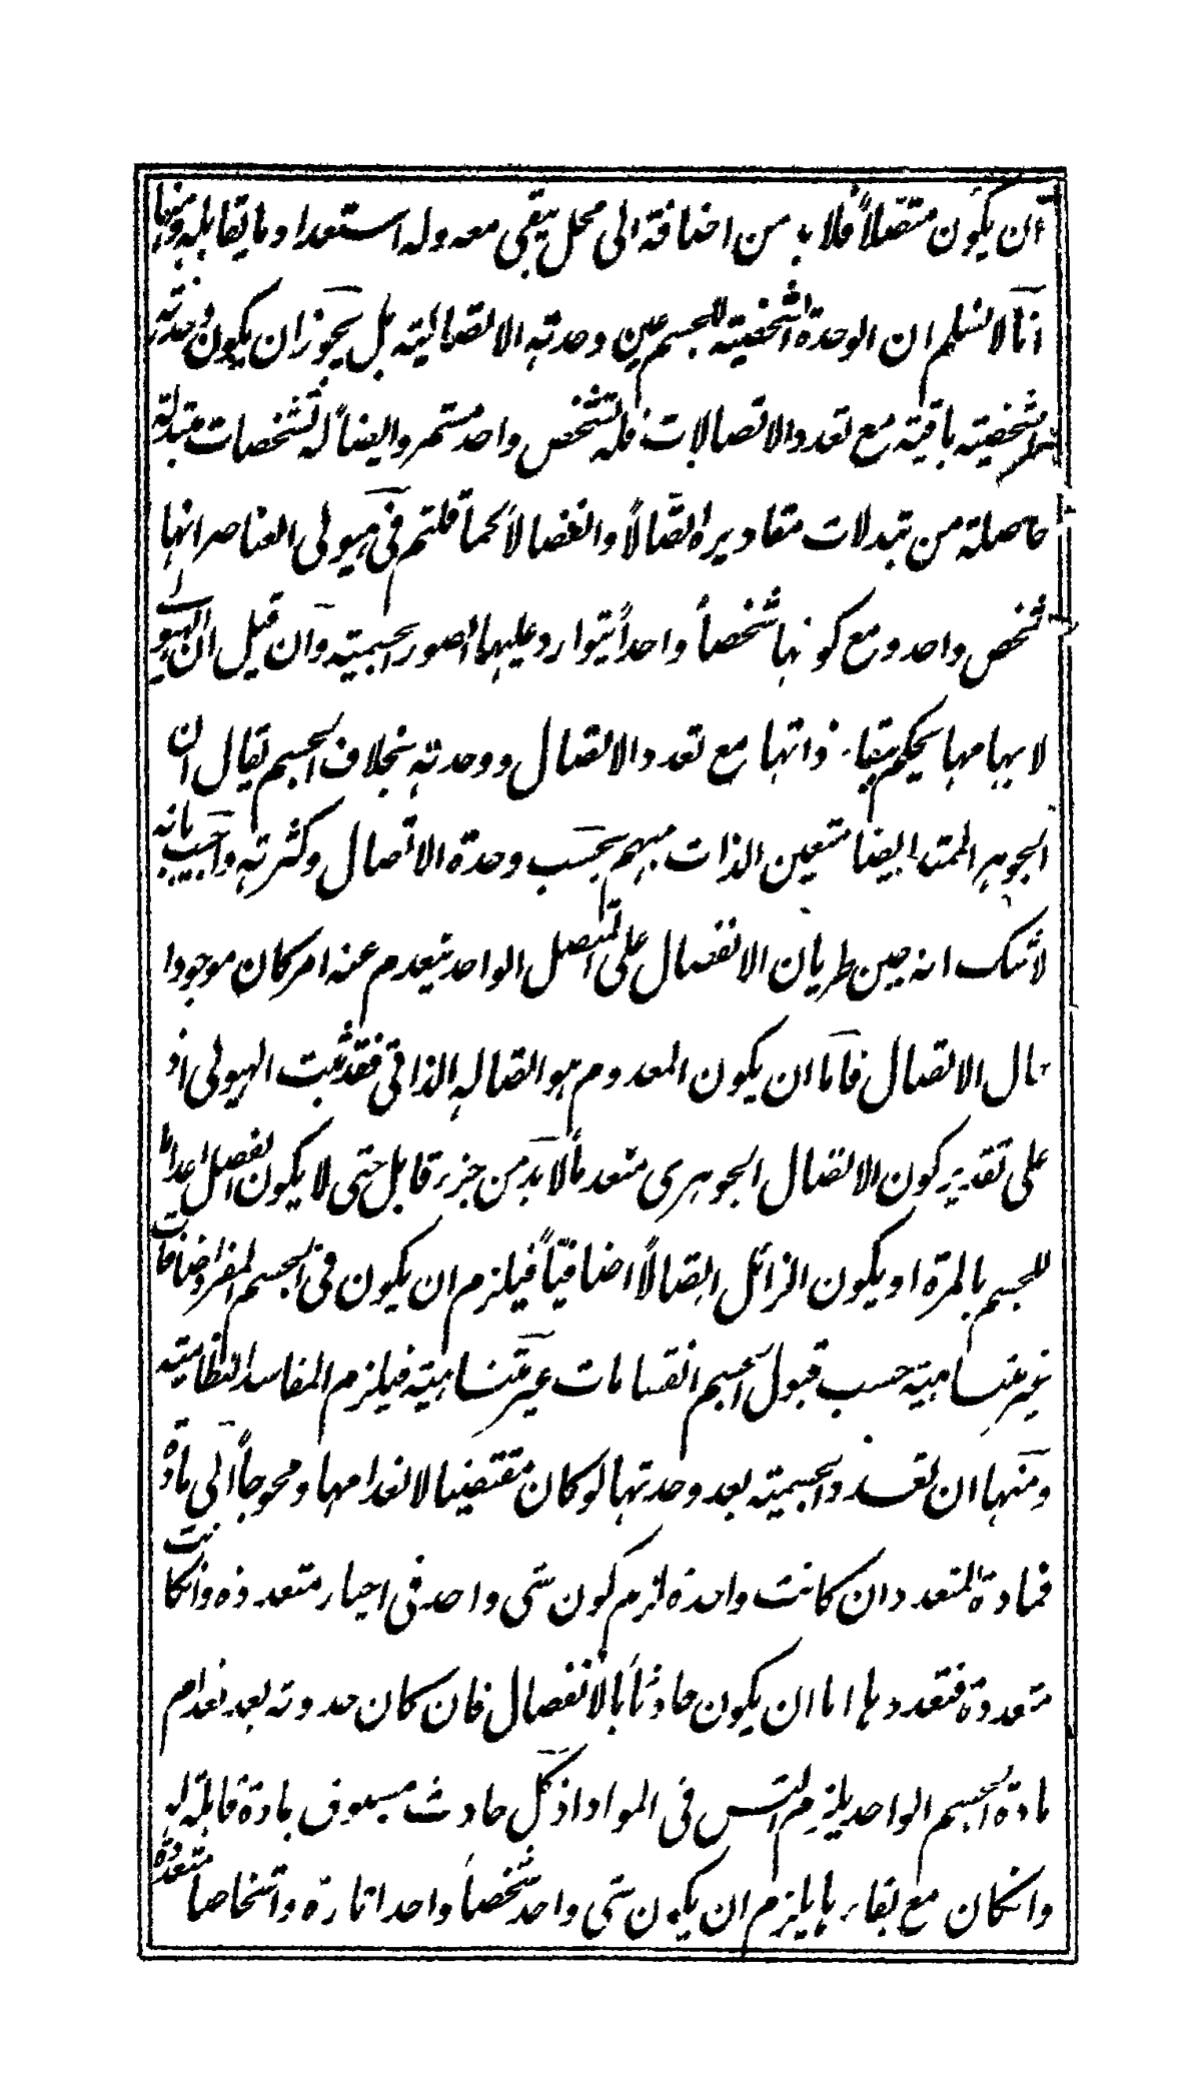 ان يكون متصلاً فلا بد من اضافة الى محل يبقى معه وله استعداد ما يقابله ومنها
انا لا نسلم ان الوحدة الشخصية للجسم عين وحدته الاتصالية بل يجوز ان يكون وحدته
الشخصية باقية مع تعدد الاتصالات فله تشخص واحد مستمر وايضاً له تشخصات متبدلة
حاصلة من تبدلات مقاديره اتصالاً وانفصالاً كما قلتم في هيولى العناصر انها
شخص واحد ومع كونها شخصاً واحداً يتوارد عليها الصور الجسمية وان قيل ان الهيولى
لابهامها يحكم ببقاء ذاتها مع تعدد الاتصال ووحدته بخلاف الجسم يقال ان
الجوهر الممتد ايضا متعين الذات مبهم بحسب وحدة الاتصال وكثرته واجيب بانه
لا شك انه حين طريان الانفصال على المتصل الواحد ينعدم عنه امر كان موجودا
حال الاتصال فاما ان يكون المعدوم هو اتصاله الذاتي فقد ثبت الهيولى اذ
على تقدير كون الاتصال الجوهرى منعدماً لا بد من جزء قابل حتى لا يكون الفصل اعداما
للجسم بالمرة او يكون الزائل اتصالاً اضافياً فيلزم ان يكون في الجسم المفرد اضافات
غير متناهية حسب قبول الجسم انقسامات غير متناهية فيلزم المفاسد النظامية
ومنها ان تعدد الجسمية بعد وحدتها لو كان مقتضيا لانعدامها ومحوجاً الى مادة
فمادة المتعدد ان كانت واحدة لزم كون شى واحد في احياز متعددة وان كانت
متعددة فتعددها اما ان يكون حادثاً بالانفصال فان كان حدوثه بعد انعدام
مادة الجسم الواحد يلزم التس في المواد اذ كل حادث مسبوق بمادة قابلة له
وانكان مع بقاءها يلزم ان يكون شى واحد شخصاً واحدا تارة واشخاصا متعددة